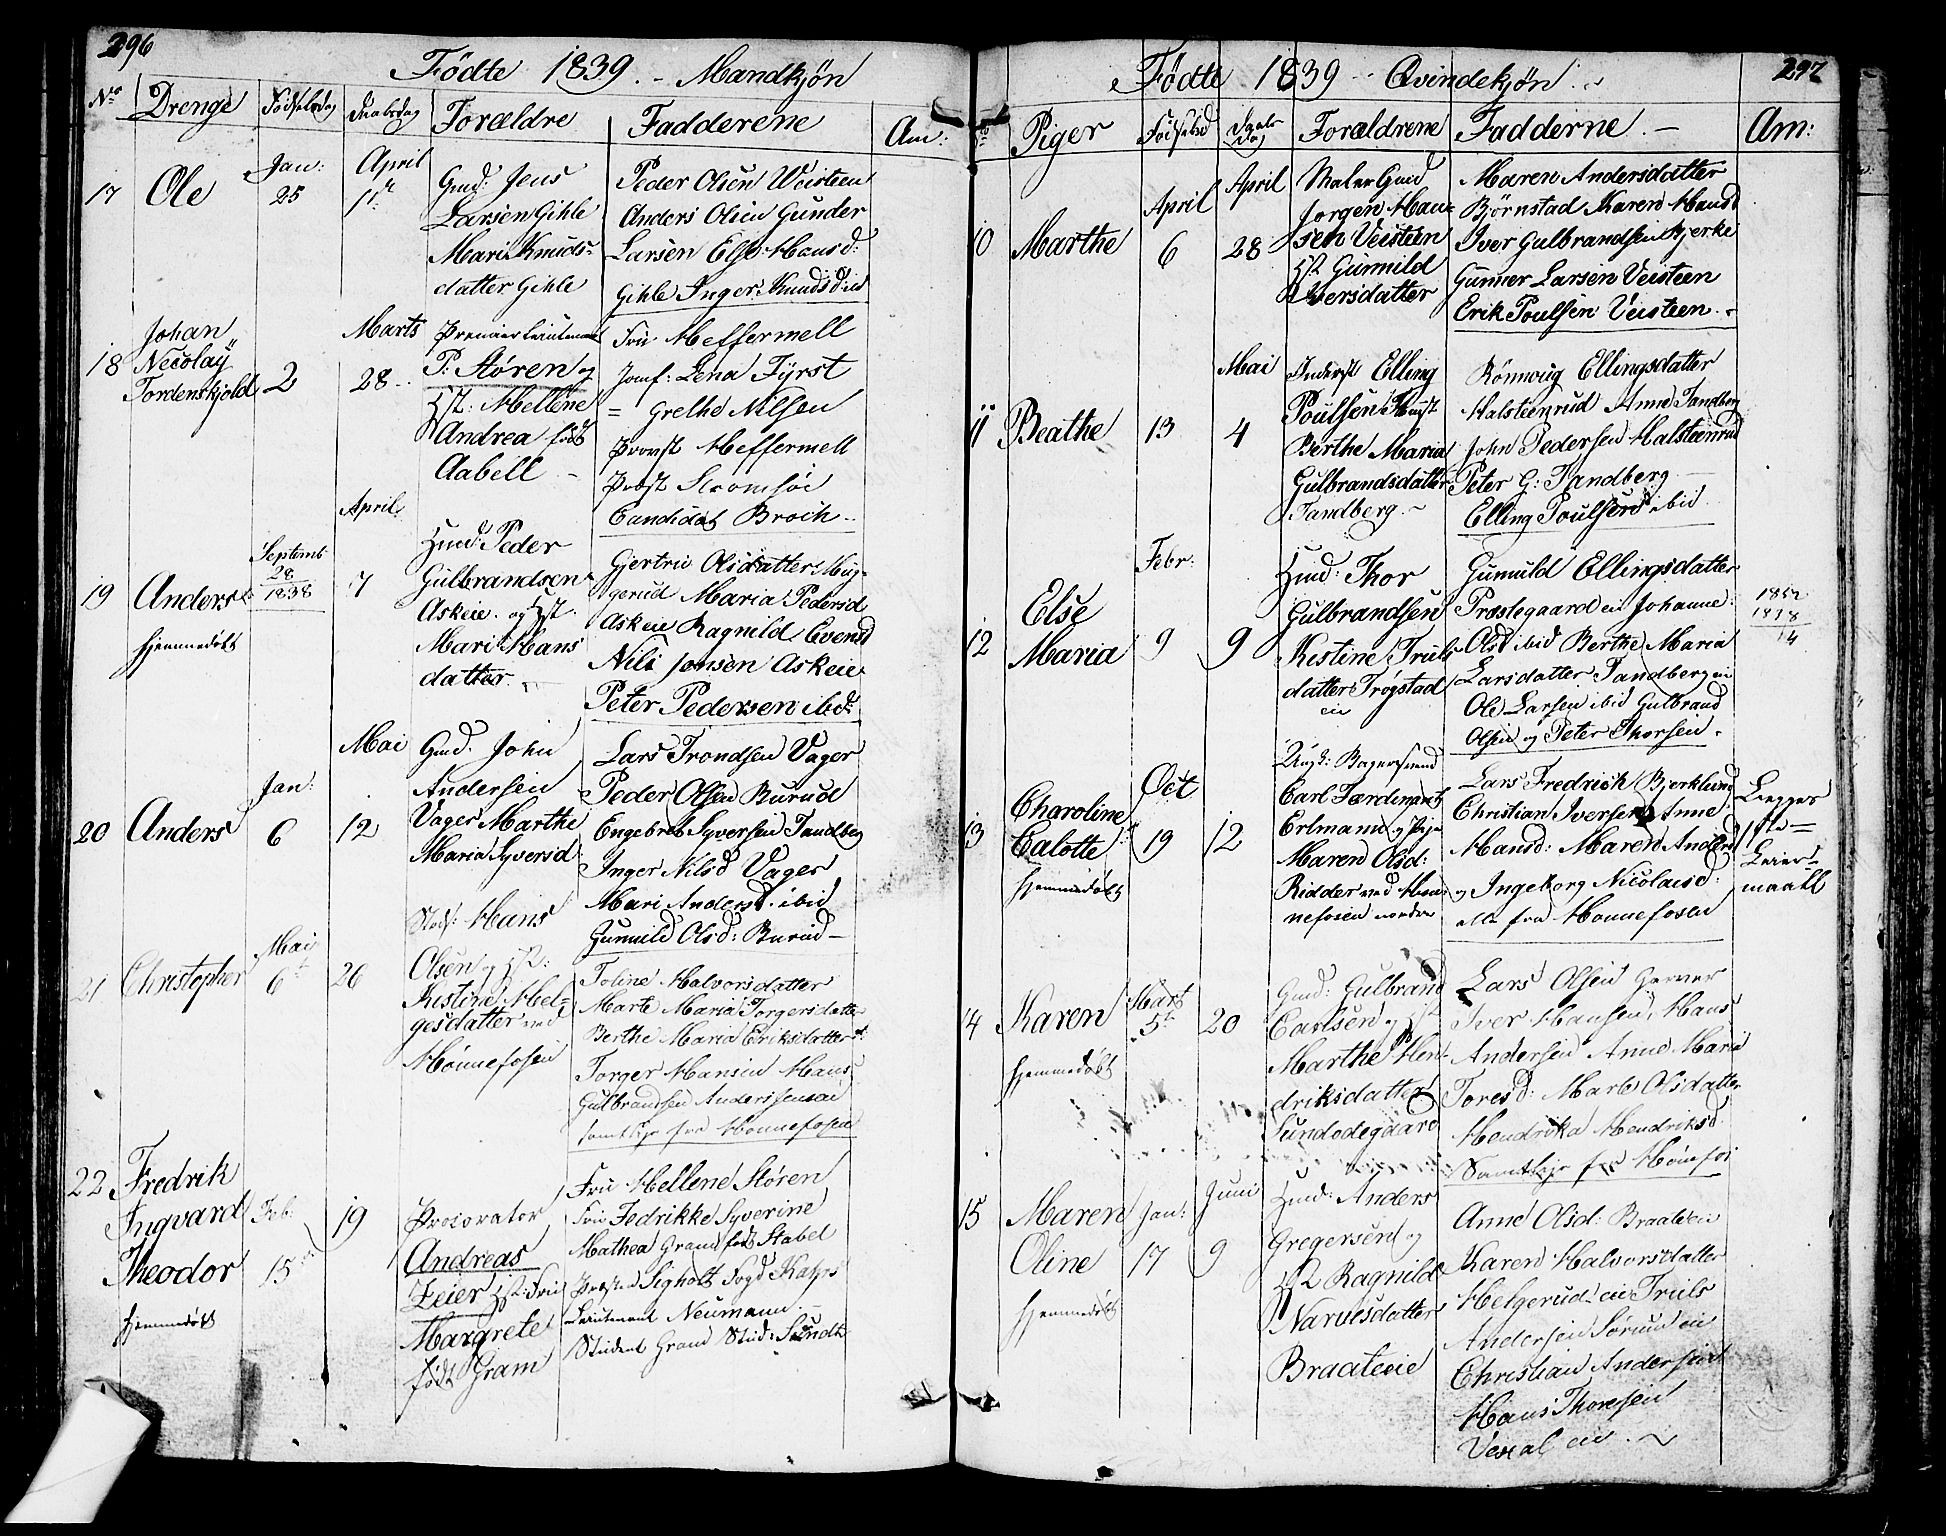 296
Födte 1839. - Mandkjön
No Drenge Födselsdag Daabsdag Forældre Fadderene An:
Jan: April
17 Ole 25 1ste
Gmd: Jens
Larsen Gihle
Mari Knuds-
datter Gihle
Peder Olsen Veisteen
Anders Olsen Gunder
Larsen Else Hansd:
Gihle Inger Knudsd ibd
Johan
Necolaÿ
Tordenskjold
18 2
Marts
28
Premier Leiutenant
P: Stören og
Hst: Hellene
Andrea födt
Aabell -
Fru Heffermell
Jomf: Lena Fÿrst
= Grethe Nilsen
Provst Heffermell
Stromsöe
Candidat Broch
19 Anders
hjemmedöbt
Septemb
28
1838
April
7
Huusmd: Peder
Gulbrandsen
Askeie og Hst:
Mari Hans
datter
Gjertru Olsdatter Mug-
gerud Maria Pedersd
Askeie Ragnild Evensd
Nils Jonsen Askeie
Peter Pedersen ibid
20 Anders
Jan:
6
Mai
12
Gmd. John
Andersen
Vager Marthe
Maria Syversd
Lars Trondsen Vager
Peder Olsen Burud
Engebret Syversen Tandberg
Inger Nilsd Vager
Mari Andersd. ibid
Gunnild Olsd: Burud -
21 Christopher
Mai
6te
26
Hans
Olsen og Hst:
Kistine Hel=
gesdatter ved
Hönnefosen
Toline Halvorsdatter
Marte Maria Torgersdatter
Berthe Maria Eriksdatter
Torger Hansen Hans
Gulbrandsen Anders Jensen
samtlige fra Hönnefosen
22 Fredrik
Ingvard
Theodor
hjemmedöbt
Feb:
15de
19
Procorator
Andreas
Zeier Hst: Fru
Margrete
födt Gram
Fru Hellene Stören
Fru Fedrikke Syverine
Mathea Gram födt Stabel
Sigholt Fogd
Leiutenant Neumann. -
Student Gram Stud: Sundt
297
Födte 1839 - Qvindekjön.
No Piger Födselsd Daabsdag Forældrene Fadderne. - Am:
10 Marthe
April
6
April
28
Maler Gmd
Jorgen Han=
sen Veisteen
Hst Gunnild
Iversdatter
Maren Andersdatter
Björnstad Karen Hansd
Iver Gulbrandsen Bjerke
Gunner Larsen Veisteen
Erik Poulsen Veisteen. -
11 Beathe
13
Mai
4
Inderst Elling
Poulsen Hst
Berthe Maria
Gulbrandsdatter
Tandberg. -
Rönnoug Ellingsdatter
Halsteenrud Anne Tandberg
John Pedersen Halsteenrud
Peter G: Tandberg
Elling Poulsen ibid
12 Else
Maria
Febr:
9
9
Huusmd: Thor
Gulbrandsen
Kistine Truls
datter Trögstad
eie
Gunuld Ellingsdatter
Præstegaard eie Johanne
Olsd ibid Berthe Maria
Larsdatter Tandberg eie
Ole Larsen ibid Gulbrand
Olsen og Peter Thorsen.
1852
1838
14
13 Charoline
Calotte
hjemmedöbt
Oct
19
12
Ungk: Bagersvend
Carl Færdenant
Erlmann og Pige
Maren Olsd:
Ridder ved Hön-
nefosen nordre
Lars Fredrick Bjerklund
Christian Iversen Anne
Hansd: Maren Andersd
og Ingeborg Nicolaisd:
alle fra Hönnefosen
Begges
1ste
Leier-
maal
14 Karen
hjemmedöbt
Mart
5te
20
Gmd: Gulbrand
Carlsen og Hst
Marthe Hen-
driksdatter
Sundodegaard
Lars Olsen Garver
Iver Hansen, Hans
Andersen Anne Maria
Toresd: Marte Olsdatter
Hendrika Hendriksd.
Samtlige fra Hönefos
15 Maren
Oline
hjemmedöbt
Jan:
17
Juni
9
Huusmd: Anders
Gregersen og
Hst Ragnild
Narvesdatter
Braateeie
Anne Olsd: Braateien
Karen Halvorsdatter
Helgerud eie Truls
Andersen Sörum eie
Christian Andersen
Hans Thoresen
Vexal eie. -